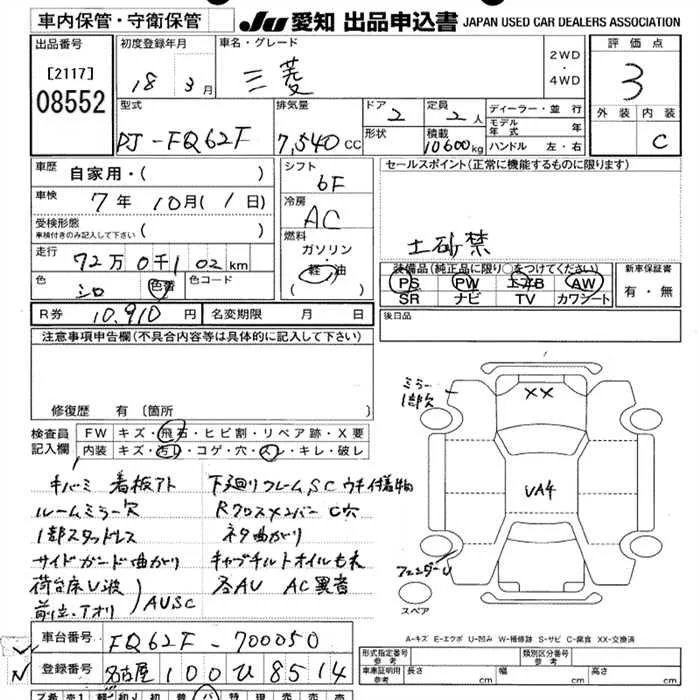 車内保管・守衛保管
JU 愛知 出品申込書 JAPAN USED CAR DEALERS ASSOCIATION
出品番号 [2117] 08552
初度登録年月 18 3月
車名・グレード 三菱
2WD・4WD
評価点 3
外装 内装 C
型式 PJ-FQ62F
排気量 7,540 CC
ドア 2
形状
定員 2人
積載 10600kg
ディーラー・並行
モデル年式 年
ハンドル 左・右
車歴 自家用・( )
車検 7年10月(1日)
受検形態 車検付きのみ記入して下さい ( )
走行 72万0千102km
色 シロ 色番 色コード
シフト 6F
冷房 AC
燃料 ガソリン・軽油 ( )
セールスポイント(正常に機能するものに限ります)
土砂禁
装備品(純正品に限り○をつけてください)
PS PW エアB AW
SR ナビ TV カワシート
新車保証書 有・無
R券 10,910円
名変期限 月 日
後日品
注意事項申告欄(不具合内容等は具体的に記入して下さい)
修復歴 有 [箇所 ]
検査員記入欄
FW キズ・飛石・ヒビ割・リペア跡・X要
内装 キズ・汚レ・コゲ・穴・スレ・キレ・破レ
キバミ 看板アト
ルームミラー欠
1部スタッドレス
サイドガード曲がり
荷台床U波
AUSC
下廻りフレームSC ウチ付着物
Rクロスメンバー C穴
ネタ曲がり
キャブチルトオイルもれ
各AU AC異音
ミラー1部欠
XX
UA4
フェンダーU
スペア
A-キズ E-エクボ U-凹み W-補修跡 S-サビ C-腐食 XX-交換済
車台番号 FQ62F-700050
登録番号 名古屋 100 ひ 8514
形式指定番号 参考
類別区分番号 参考
車庫証明用 参考 長さ cm 幅 cm 高さ cm